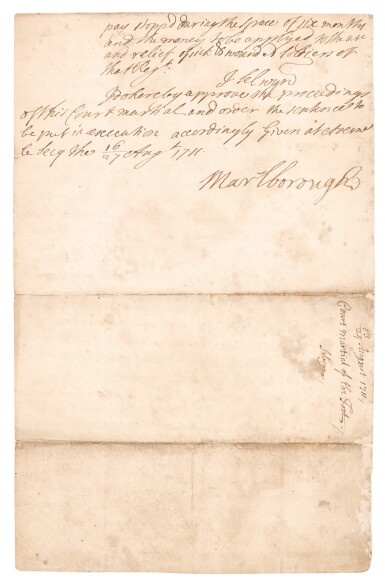 pay stopd during the space of six months
and the money to be applyed to the use
and relief of sick & wounded soldiers of
that Regt.
J: Selwyn
I do hereby approve the proceedings
of this Court martial and order the sentence to
be put in execution accordingly Given at
le Secq the 16/27 Augt 1711
Marlborough
August 1711
Court martial of the